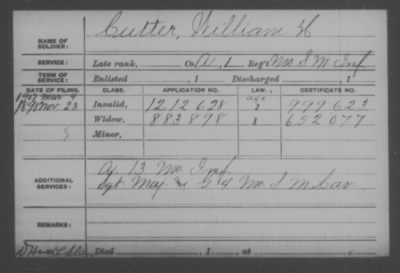 Cutter, William H
NAME OF SOLDIER:
SERVICE: Late rank, Co. A, 1 Reg't Mo. S M Inf
TERM OF SERVICE: Enlisted , 1 Discharged , 1
DATE OF FILING. CLASS. APPLICATION NO. LAW. CERTIFICATE NO.
Invalid, 1212628 age 997623
1898 Nov 23 Widow, 883898 652077
Minor,
ADDITIONAL SERVICES: 13 Mo. Inf
Sgt Maj 4 Mo S M Cav
REMARKS:
Died , 1 , at